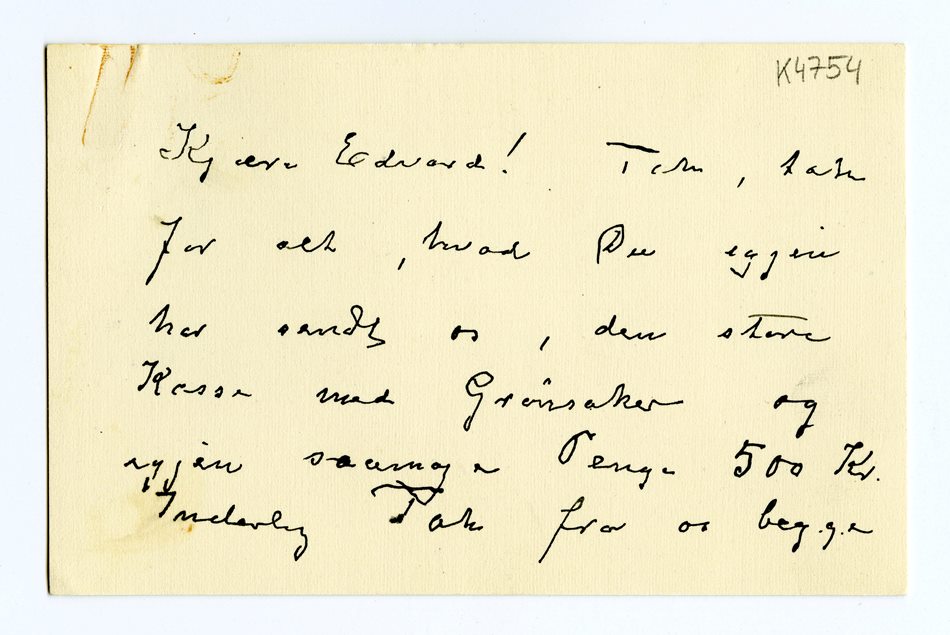 K4754
Kjære Edvard! Tak, tak
for alt, hvad Du igjen
har sendt os, den store
Kasse med Grönsaker og
igjen saamage Penge 500 Kr.
Inderlig Tak fra os begge